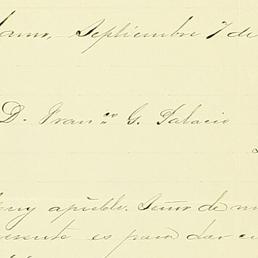 Septiembre 7 de
D. Fran.co G. Palacio
muy apble. Señor de mi
presente es para dar